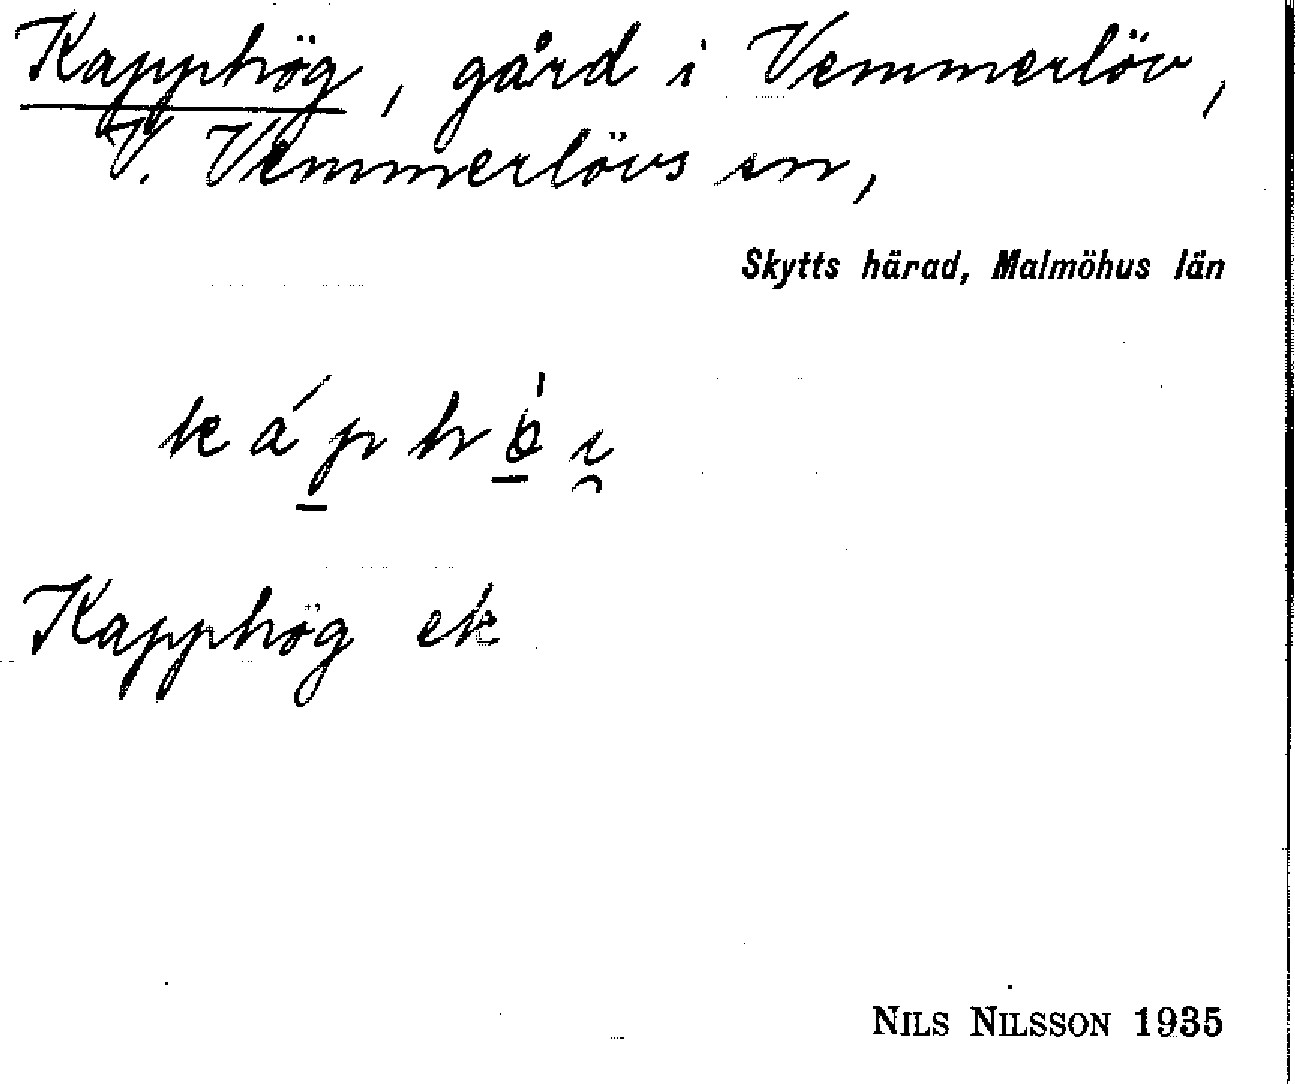 Kapphög, gård i Vemmerlöv,
V. Vemmerlövs sn,
Skytts härad, Malmöhus län
Kapphög ek
NILS NILSSON 1935